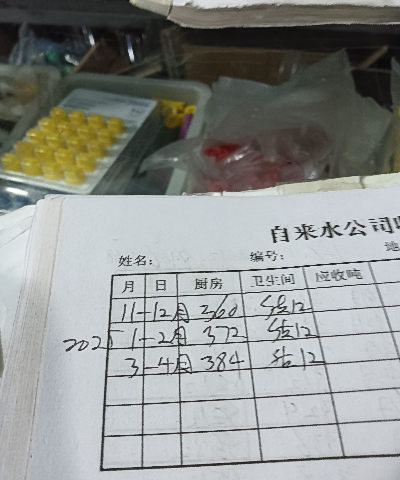 自来水公司
姓名： 编号： 地
月 日 厨房 卫生间 应收吨
11-12月 360 估12
2025 1-2月 372 估12
3-4月 384 估12